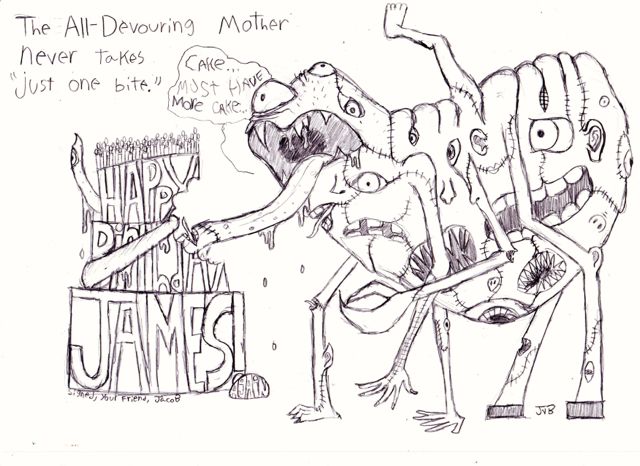 The All-Devouring Mother
never takes
"just one bite."
Cake...
MUST HAVE
More cake...
HAPPY
JAMES!
Signed, your friend, Jacob
JVB